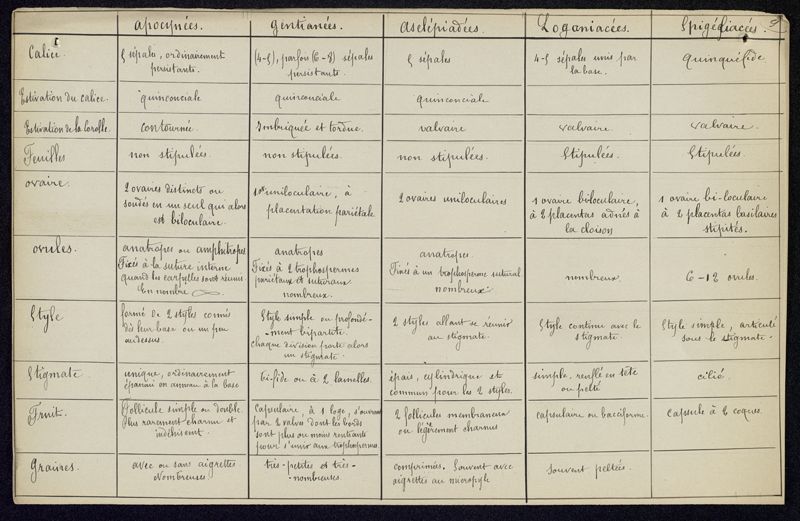 apocynées. Gentianées. Asclépiadées. Loganiacées. Spigéliacées.
Calice. 5 sépales, ordinairement persistants. (4-5), parfois (6-8) sépales persistants. 5 sépales 4-5 sépales unis par la base. Quinquéfide
Estivation du calice. quinconciale quinconciale quinconciale
Estivation de la Corolle. contournée. Imbriquée et tordue. valvaire valvaire. valvaire.
Feuilles non stipulées. non stipulées. non stipulées. Stipulées. Stipulées.
ovaire.
2 ovaires distincts ou
soudés en un seul qui alors
est biloculaire.
uniloculaire, à
placentation pariétale
2 ovaires uniloculaires
1 ovaire biloculaire,
à 2 placentas adnés à
la cloison
1 ovaire bi-loculaire
à 2 placentas basilaires
stipités.
ovules.
anatropes ou amphitropes
Fixés à la suture interne
quand les carpelles sont réunis.
En nombre ∞
anatropes
Fixés à 2 trophospermes
pariétaux et suturaux
nombreux.
anatropes.
Fixés à un trophosperme sutural
nombreux
nombreux
6-12 ovules.
Style
formé de 2 styles connés
dès leur base ou un peu
audessus.
Style simple ou profondé-
-ment bipartite.
chaque division porte alors
un stigmate.
2 styles allant se réunir
au stigmate.
Style continu avec le
stigmate.
Style simple, articulé
sous le stigmate.
Stigmate
unique, ordinairement
épanoui en anneau à la base
bi-fide ou à 2 lamelles.
épais, cylindrique et
commun pour les 2 styles.
simple, renflé en tête
ou pelté
cilié.
Fruit.
Follicule simple ou double.
Plus rarement charnu et
indéhiscent.
Capsulaire, à 1 loge, s'ouvrant
par 2 valves dont les bords
sont plus ou moins rentrants
pour s'unir aux trophospermes.
2 follicules membraneux
ou légèrement charnus
capsulaire ou bacciforme.
Capsule à 2 coques.
Graines.
avec ou sans aigrettes
Nombreuses
très-petites et très-
-nombreuses.
comprimées. Souvent avec
aigrettes au micropyle
Souvent peltées.